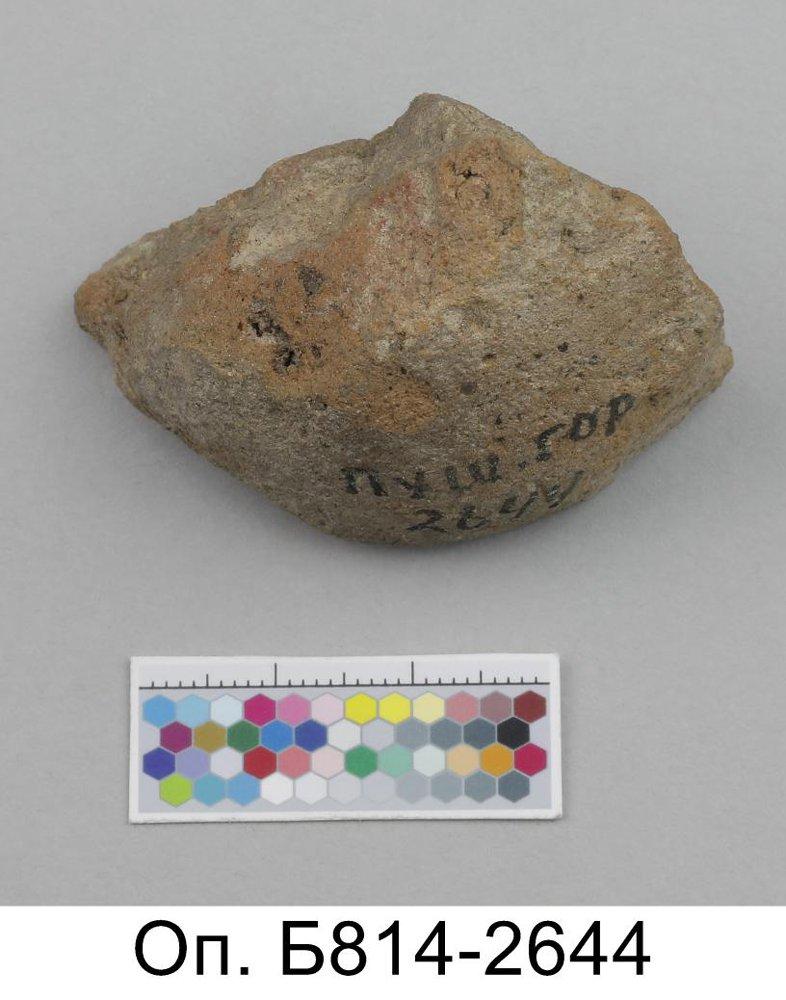 ПУШ. ГОР
2644
Оп. Б814-2644